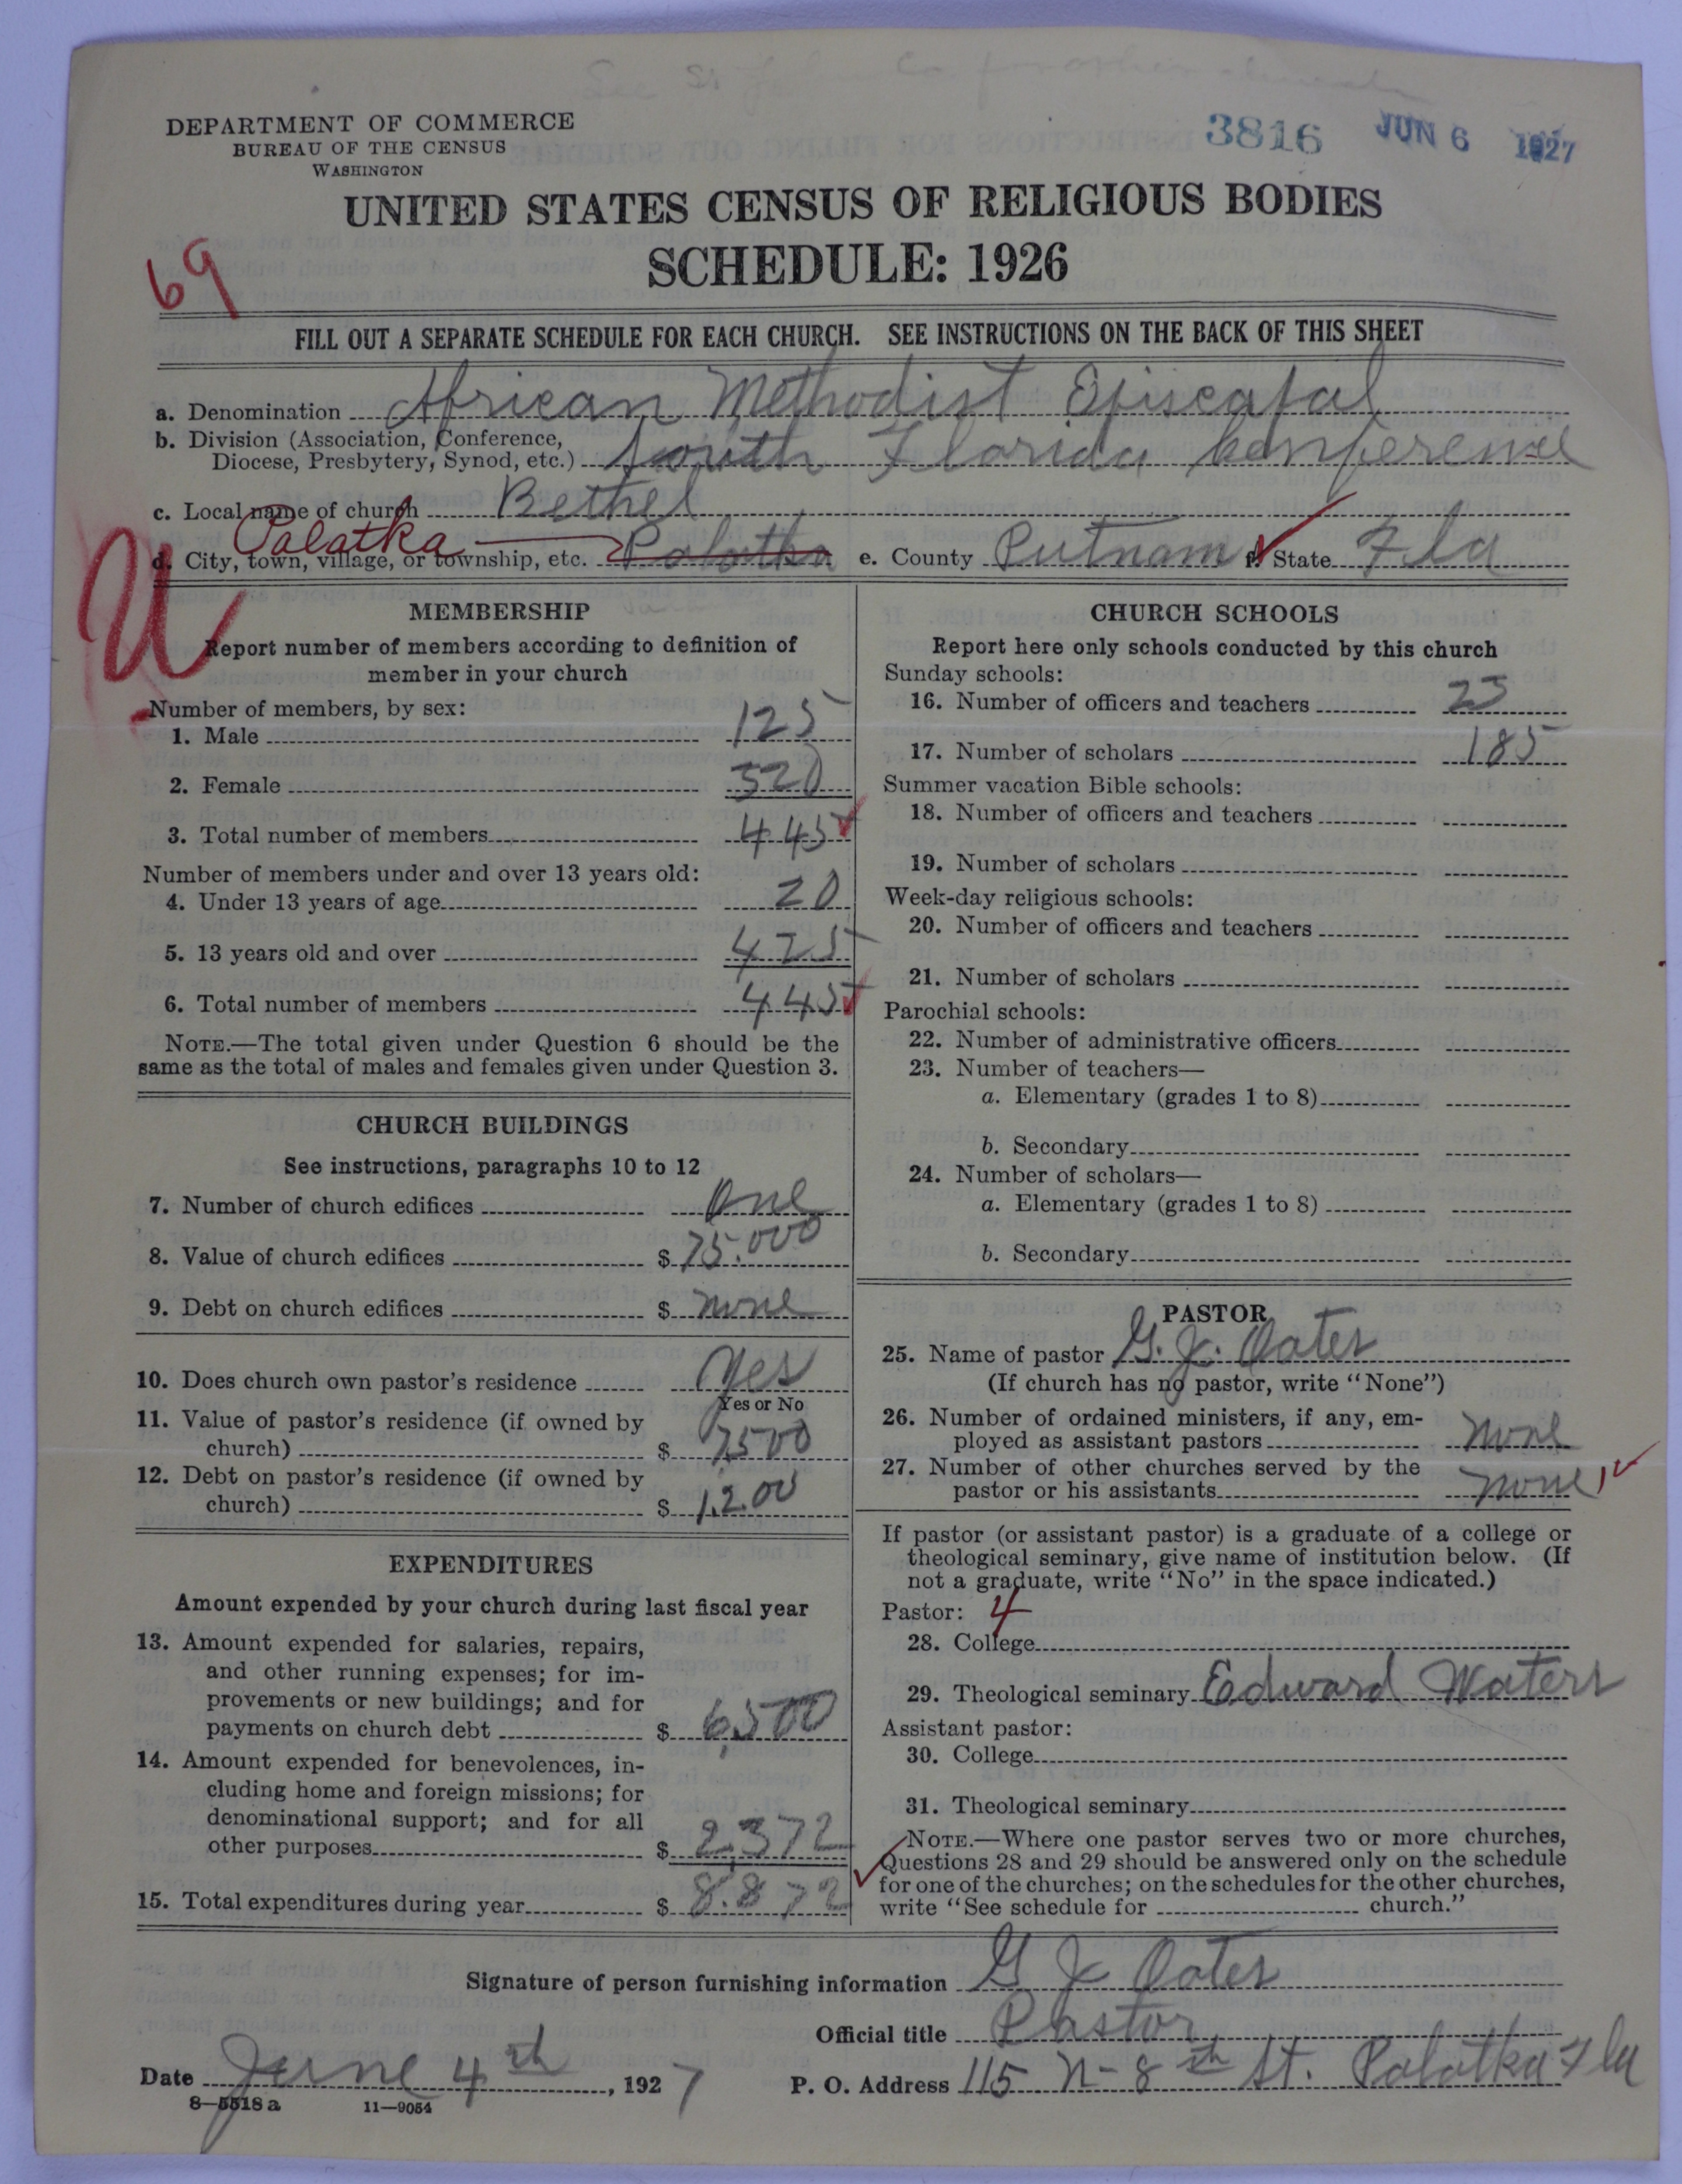 3816 JUN 6 1927
DEPARTMENT OF COMMERCE
BUREAU OF THE CENSUS
WASHINGTON
UNITED STATES CENSUS OF RELIGIOUS BODIES
SCHEDULE: 1926
69
FILL OUT A SEPARATE SCHEDULE FOR EACH CHURCH. SEE INSTRUCTIONS ON THE BACK OF THIS SHEET
a. Denomination African Methodist Episcapal
b. Division (Association, Conference,
Diocese, Presbytery, Synod, etc.) South Florida Conference
c. Local name of church Bethel
d. City, town, village, or township, etc. Palatka Palatka e. County Putnam f. State Fla
U
MEMBERSHIP
Report number of members according to definition of
member in your church
Number of members, by sex:
1. Male 125
2. Female 320
3. Total number of members 445
Number of members under and over 13 years old:
4. Under 13 years of age 20
5. 13 years old and over 425
6. Total number of members 445
NOTE.—The total given under Question 6 should be the
same as the total of males and females given under Question 3.
CHURCH BUILDINGS
See instructions, paragraphs 10 to 12
7. Number of church edifices One
8. Value of church edifices $ 75.000
9. Debt on church edifices $ none
10. Does church own pastor's residence Yes
Yes or No
11. Value of pastor's residence (if owned by
church) $ 7500
12. Debt on pastor's residence (if owned by
church) $ 1,2.00
EXPENDITURES
Amount expended by your church during last fiscal year
13. Amount expended for salaries, repairs,
and other running expenses; for im-
provements or new buildings; and for
payments on church debt $ 6,500
14. Amount expended for benevolences, in-
cluding home and foreign missions; for
denominational support; and for all
other purposes $ 2,372
15. Total expenditures during year $ 8.872
CHURCH SCHOOLS
Report here only schools conducted by this church
Sunday schools:
16. Number of officers and teachers 23
17. Number of scholars 185
Summer vacation Bible schools:
18. Number of officers and teachers
19. Number of scholars
Week-day religious schools:
20. Number of officers and teachers
21. Number of scholars
Parochial schools:
22. Number of administrative officers
23. Number of teachers—
a. Elementary (grades 1 to 8)
b. Secondary
24. Number of scholars—
a. Elementary (grades 1 to 8)
b. Secondary
PASTOR
25. Name of pastor G. J. Oates
(If church has no pastor, write "None")
26. Number of ordained ministers, if any, em-
ployed as assistant pastors None
27. Number of other churches served by the
pastor or his assistants None
If pastor (or assistant pastor) is a graduate of a college or
theological seminary, give name of institution below. (If
not a graduate, write "No" in the space indicated.)
Pastor: 4
28. College
29. Theological seminary Edward Waters
Assistant pastor:
30. College
31. Theological seminary
NOTE.—Where one pastor serves two or more churches,
Questions 28 and 29 should be answered only on the schedule
for one of the churches; on the schedules for the other churches,
write "See schedule for church."
Signature of person furnishing information G J Oates
Official title Pastor
Date June 4th, 1927 P. O. Address 115 N-8th St. Palatka Fla
8—5518 a 11—9054